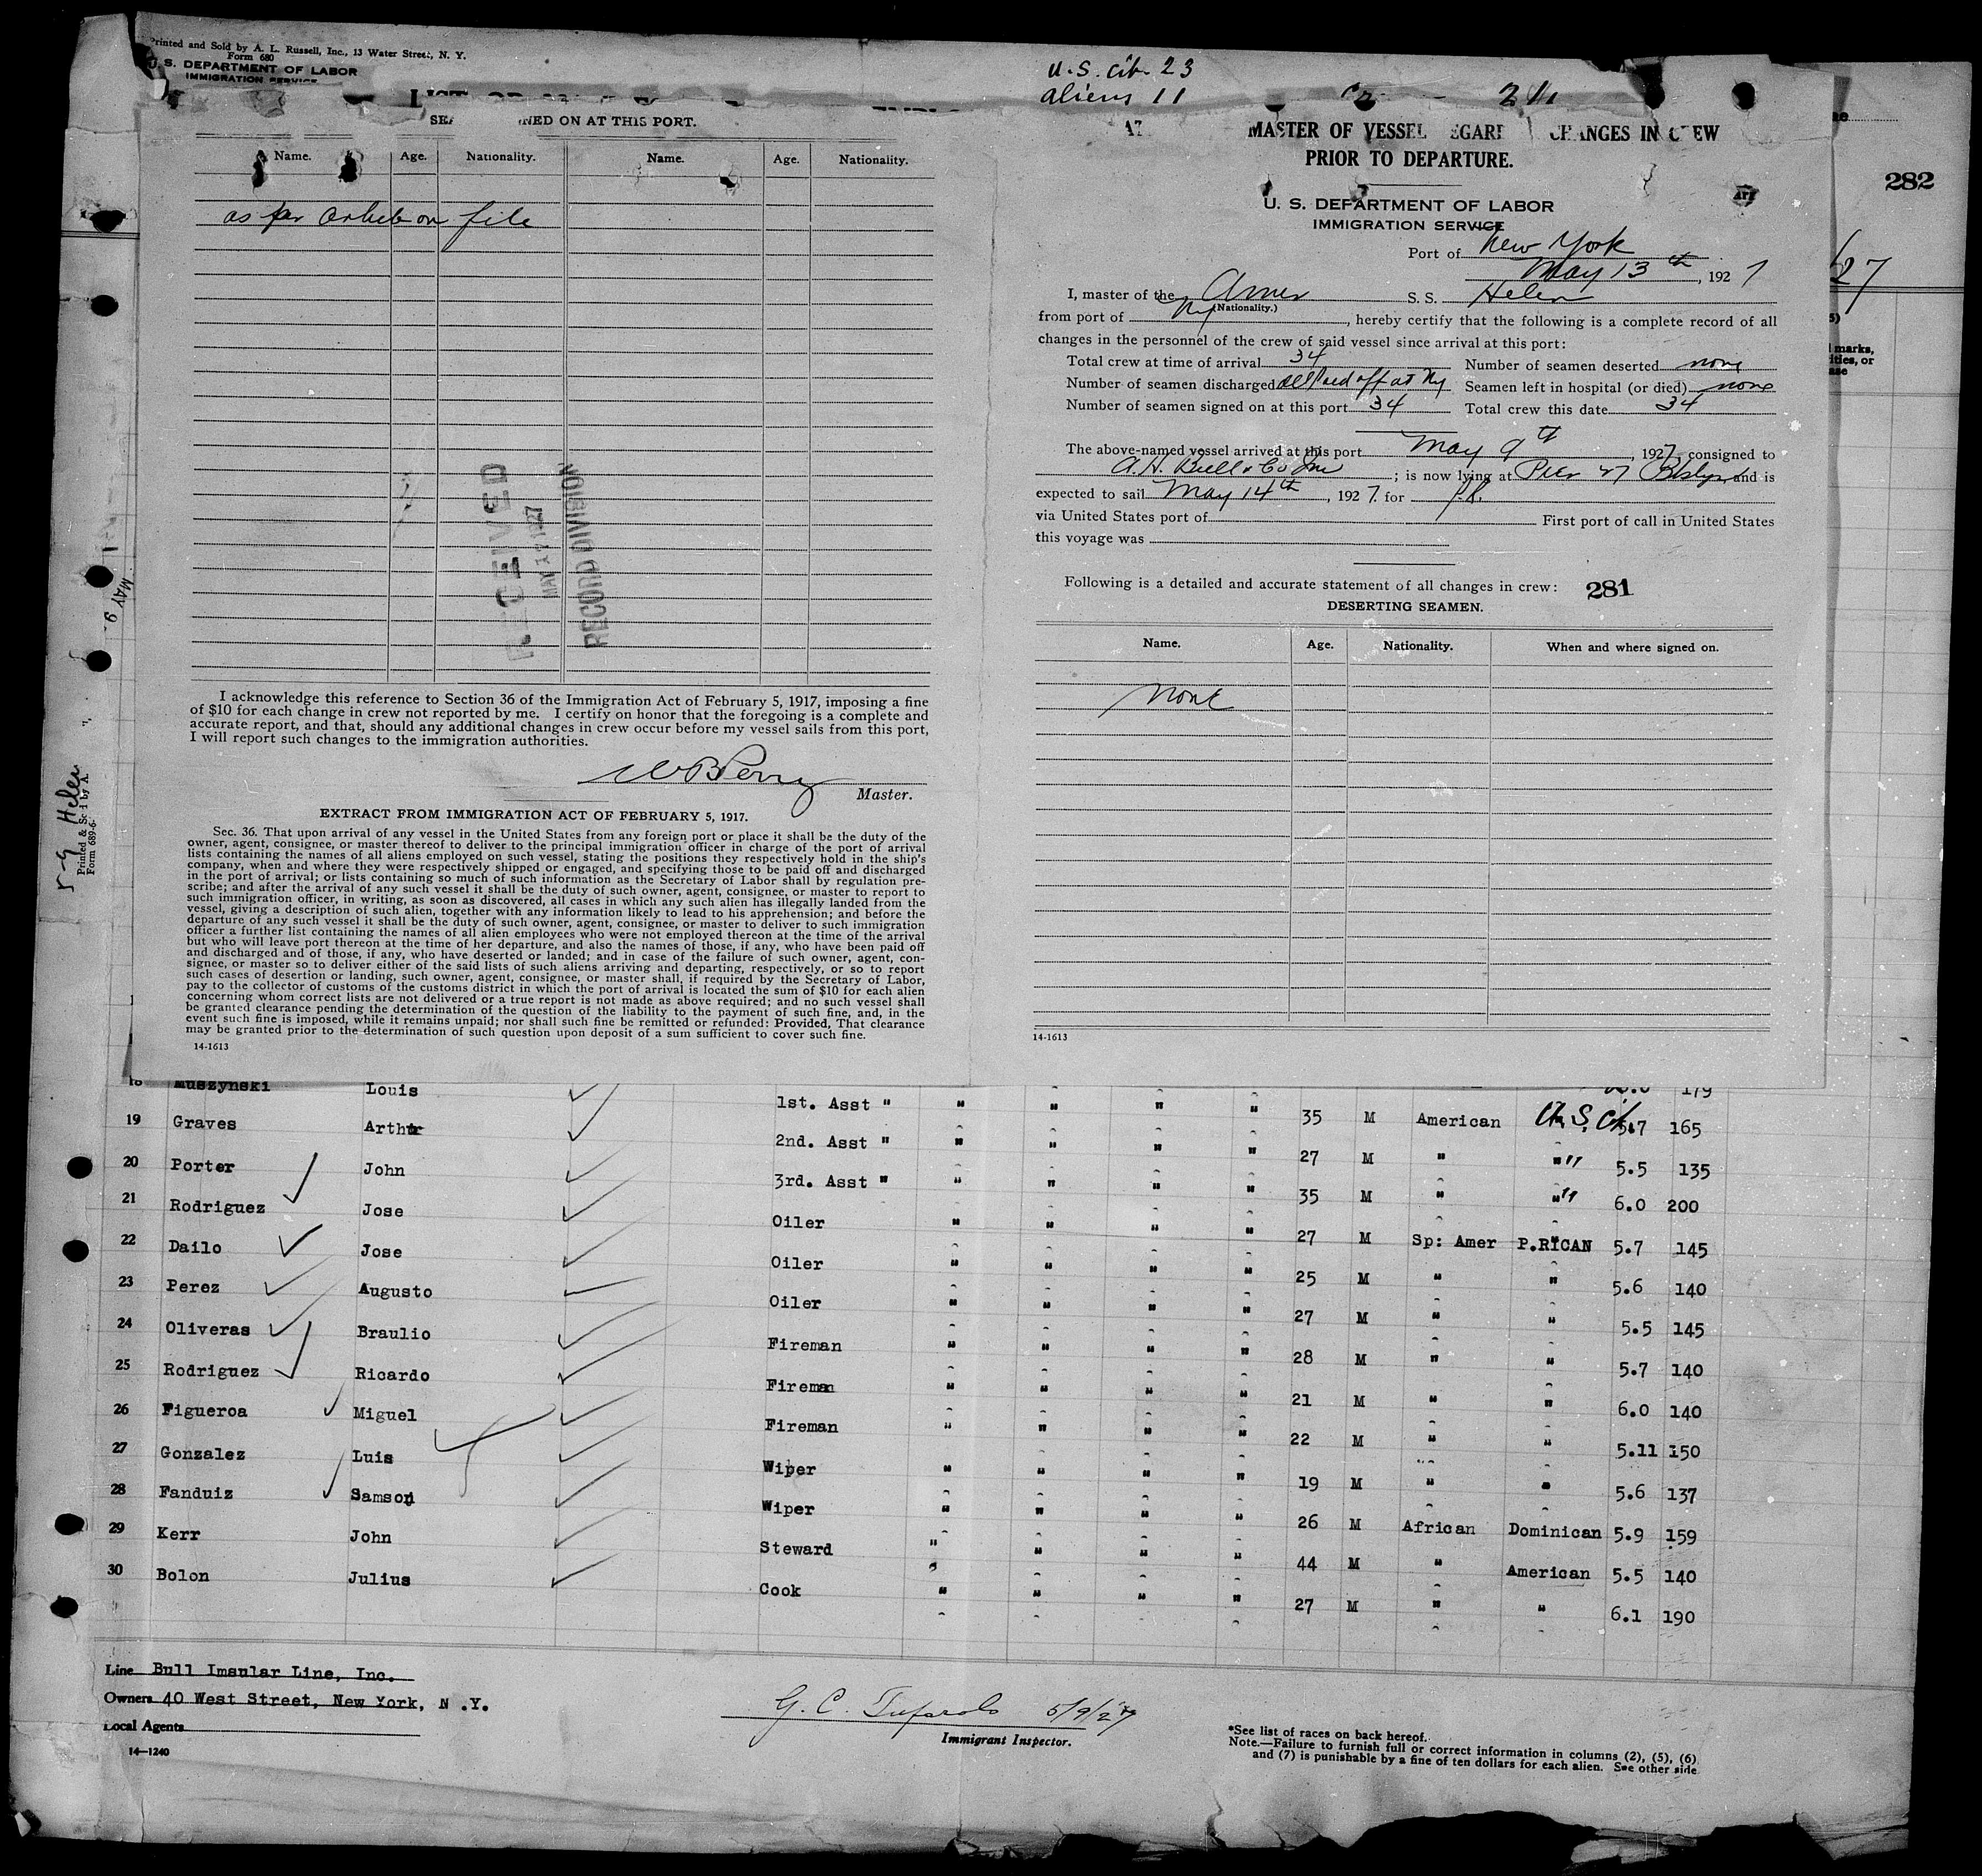 Printed and Sold by A. L. Russell, Inc., 13 Water Street, N. Y.
Form 680
U. S. DEPARTMENT OF LABOR
IMMIGRATION SERVICE
U.S. Cit. 23
aliens 11
ON AT THIS PORT.
Name. Age. Nationality. Name. Age. Nationality.
as per on file
RECEIVED
MAY 1927
RECORD DIVISION
I acknowledge this reference to Section 36 of the Immigration Act of February 5, 1917, imposing a fine
of $10 for each change in crew not reported by me. I certify on honor that the foregoing is a complete and
accurate report, and that, should any additional changes in crew occur before my vessel sails from this port,
I will report such changes to the immigration authorities.
WB Perry
Master.
EXTRACT FROM IMMIGRATION ACT OF FEBRUARY 5, 1917.
Sec. 36. That upon arrival of any vessel in the United States from any foreign port or place it shall be the duty of the
owner, agent, consignee, or master thereof to deliver to the principal immigration officer in charge of the port of arrival
lists containing the names of all aliens employed on such vessel, stating the positions they respectively hold in the ship's
company, when and where they were respectively shipped or engaged, and specifying those to be paid off and discharged
in the port of arrival; or lists containing so much of such information as the Secretary of Labor shall by regulation pre-
scribe; and after the arrival of any such vessel it shall be the duty of such owner, agent, consignee, or master to report to
such immigration officer, in writing, as soon as discovered, all cases in which any such alien has illegally landed from the
vessel, giving a description of such alien, together with any information likely to lead to his apprehension; and before the
departure of any such vessel it shall be the duty of such owner, agent, consignee, or master to deliver to such immigration
officer a further list containing the names of all alien employees who were not employed thereon at the time of the arrival
but who will leave port thereon at the time of her departure, and also the names of those, if any, who have been paid off
and discharged and of those, if any, who have deserted or landed; and in case of the failure of such owner, agent, con-
signee, or master so to deliver either of the said lists of such aliens arriving and departing, respectively, or so to report
such cases of desertion or landing, such owner, agent, consignee, or master shall, if required by the Secretary of Labor,
pay to the collector of customs of the customs district in which the port of arrival is located the sum of $10 for each alien
concerning whom correct lists are not delivered or a true report is not made as above required; and no such vessel shall
be granted clearance pending the determination of the question of the liability to the payment of such fine, and, in the
event such fine is imposed, while it remains unpaid; nor shall such fine be remitted or refunded: Provided, That clearance
may be granted prior to the determination of such question upon deposit of a sum sufficient to cover such fine.
14-1613
MASTER OF VESSEL REGARDING CHANGES IN CREW
PRIOR TO DEPARTURE.
U. S. DEPARTMENT OF LABOR
IMMIGRATION SERVICE
Port of New York
May 13th, 1927
I, master of the Amer S. S. Helen
(Nationality.)
from port of NY, hereby certify that the following is a complete record of all
changes in the personnel of the crew of said vessel since arrival at this port:
Total crew at time of arrival 34 Number of seamen deserted none
Number of seamen discharged all paid off at NY Seamen left in hospital (or died) none
Number of seamen signed on at this port 34 Total crew this date 34
The above-named vessel arrived at this port May 9th, 1927, consigned to
A.H. Bull & Co Inc; is now lying at Pier 27 Bklyn, and is
expected to sail May 14th, 1927. for P.R.
via United States port of First port of call in United States
this voyage was
Following is a detailed and accurate statement of all changes in crew: 281
DESERTING SEAMEN.
Name. Age. Nationality. When and where signed on.
none
14-1613
282
27
marks,
ities, or
MAY 9
5-9 Helen
Printed & Sold by A.
Form 689-6-
18 Muszynski Louis 1st. Asst " " " " " 35 M American U.S. Cit. 179
19 Graves Arthur 2nd. Asst " " " " " 27 M " " 5.7 165
20 Porter John 3rd. Asst " " " " " 35 M " " 5.5 135
21 Rodriguez Jose Oiler " " " " 27 M Sp: Amer P.RICAN 6.0 200
22 Dailo Jose Oiler " " " " 25 M " " 5.7 145
23 Perez Augusto Oiler " " " " 27 M " " 5.6 140
24 Oliveras Braulio Fireman " " " " 28 M " " 5.5 145
25 Rodriguez Ricardo Fireman " " " " 21 M " " 5.7 140
26 Figueroa Miguel Fireman " " " " 22 M " " 6.0 140
27 Gonzalez Luis Wiper " " " " 19 M " " 5.11 150
28 Fanduiz Samson Wiper " " " " 26 M African Dominican 5.6 137
29 Kerr John Steward " " " " 44 M " American 5.9 159
30 Bolon Julius Cook " " " " 27 M " " 5.5 140
6.1 190
Line Bull Imsular Line, Inc.
Owners 40 West Street, New York, N.Y.
Local Agents
14—1240
G. C. 5/9/27
Immigrant Inspector.
*See list of races on back hereof.
Note.—Failure to furnish full or correct information in columns (2), (5), (6)
and (7) is punishable by a fine of ten dollars for each alien. See other side